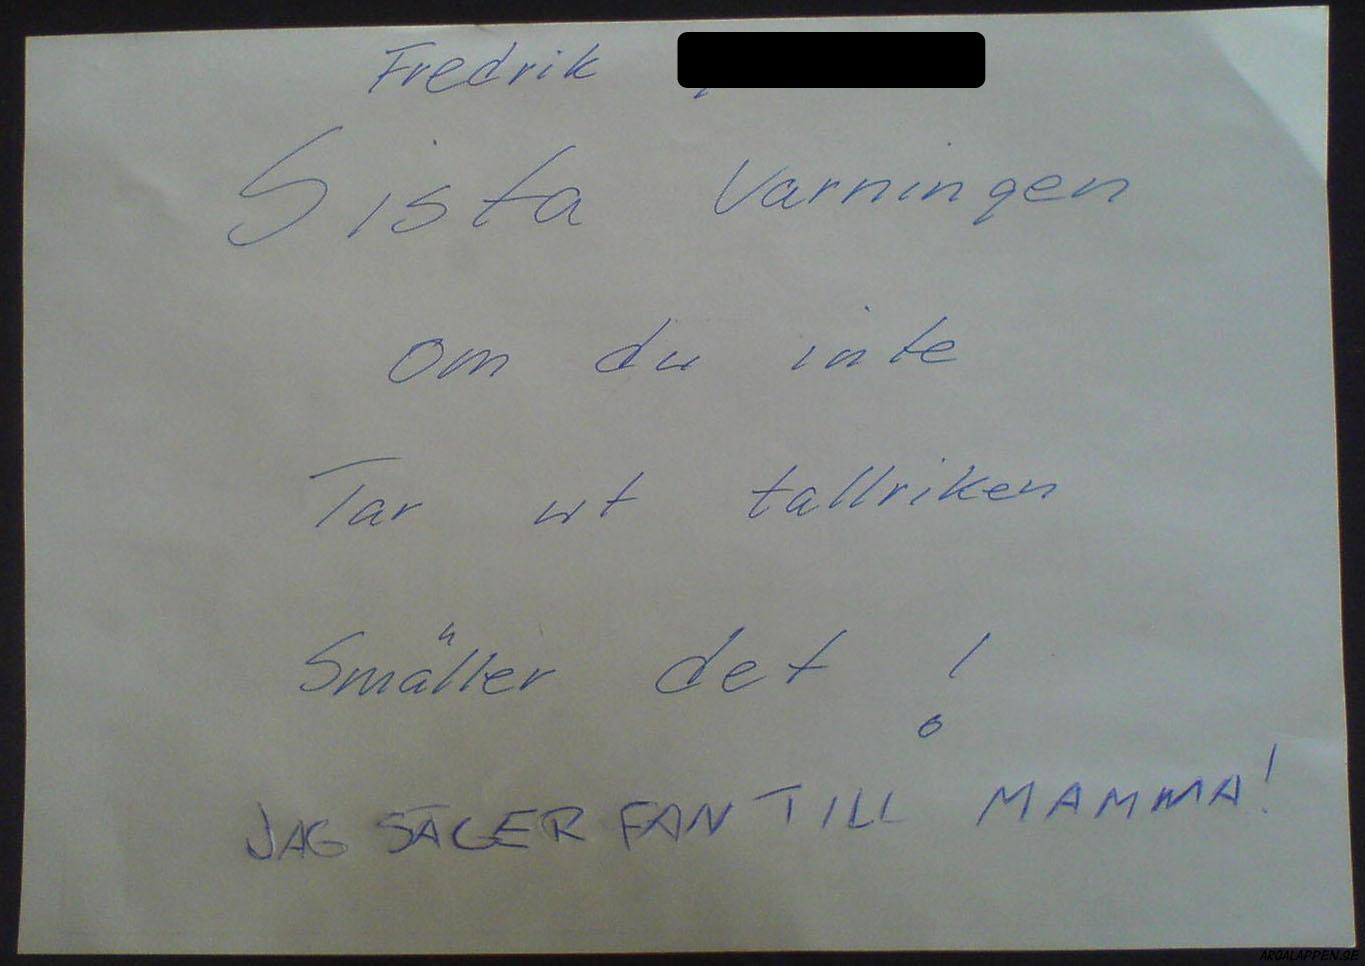 Fredrik
Sista varningen
om du inte
Tar ut tallriken
Smäller det !
JAG SÄGER FAN TILL MAMMA!
ARGALAPPEN.SE